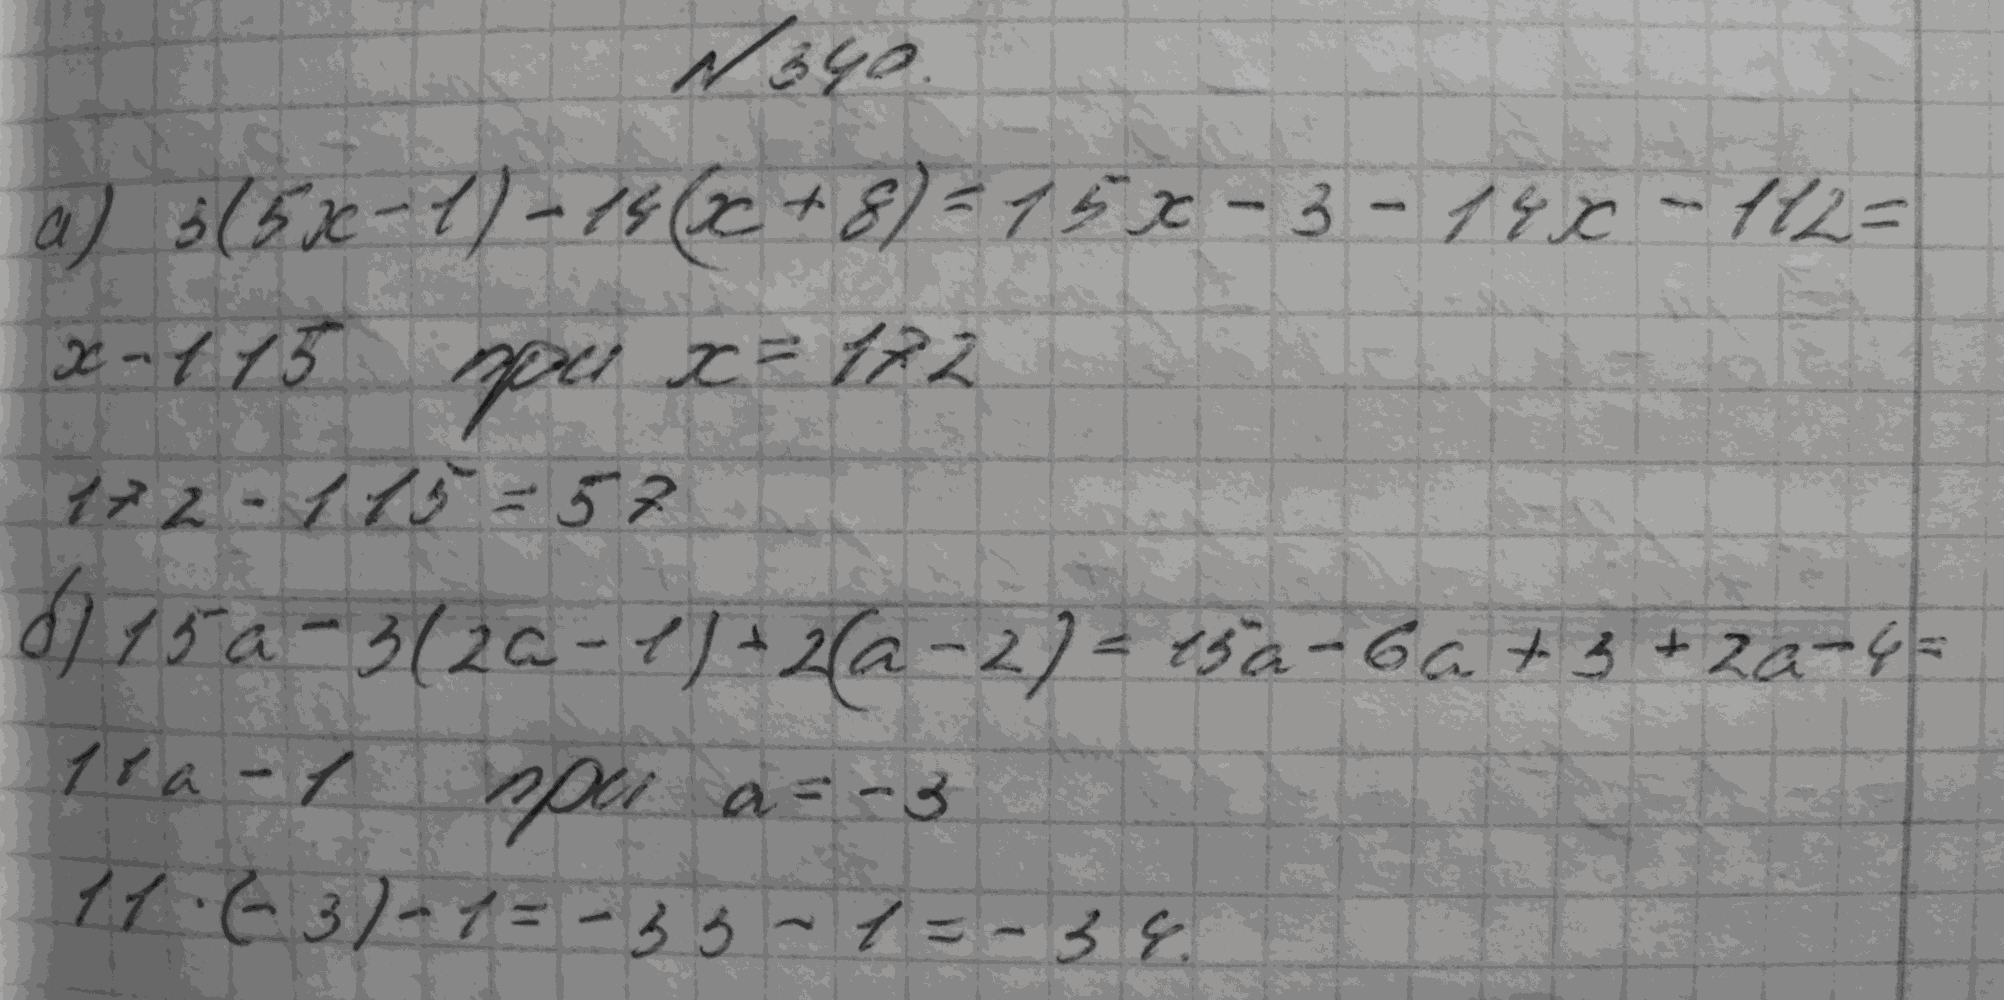 №340.
а) 3(5x-1)-14(x+8)=15x-3-14x-112=
x-115 при x=172
172-115=57
б) 15a-3(2a-1)+2(a-2)=15a-6a+3+2a-4=
11a-1 при a=-3
11·(-3)-1=-33-1=-34.